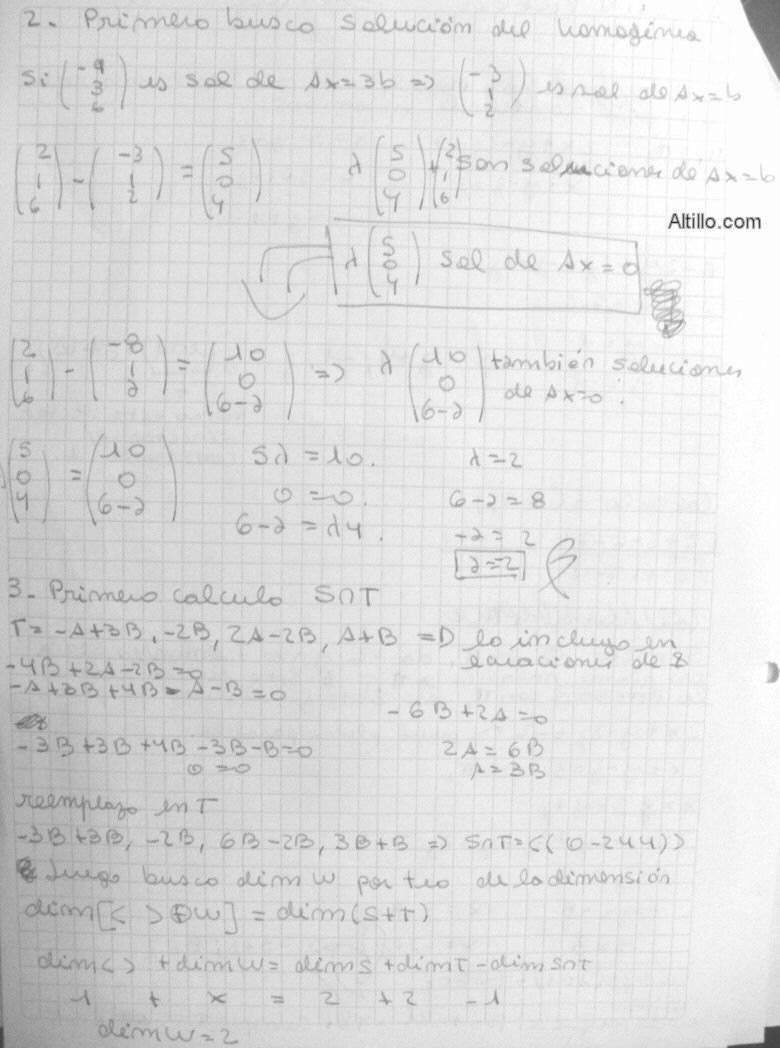 2. Primero busco solución del homogénea
Si (-9 3 6) es sol de Ax=3b => (-3 1 2) es sol de Ax=b
(2 1 6) - (-3 1 2) = (5 0 4) λ(5 0 4)+(2 1 6) son soluciones de Ax=b
Altillo.com
λ(5 0 4) sol de Ax=0
(2 1 6) - (-8 1 a) = (10 0 6-a) => λ(10 0 6-a) también soluciones de Ax=0
(5 0 4) = (10 0 6-a) 5λ=10. λ=2
0=0. 6-a=8
6-a=λ4. -a=2
a=-2
3- Primero calculo S∩T
T= -A+3B, -2B, 2A-2B, A+B => lo incluyo en
ecuaciones de S
-4B+2A-2B=0
-A+3B+4B-A-B=0
-6B+2A=0
-3B+3B+4B-3B-B=0 2A=6B
0=0 A=3B
reemplazo en T
-3B+3B, -2B, 6B-2B, 3B+B => S∩T=<(0 -2 4 4)>
Luego busco dim W por teo de la dimensión
dim[< >⊕W] = dim(S+T)
dim< > + dim W = dim S + dim T - dim S∩T
1 + x = 2 + 2 - 1
dim W = 2